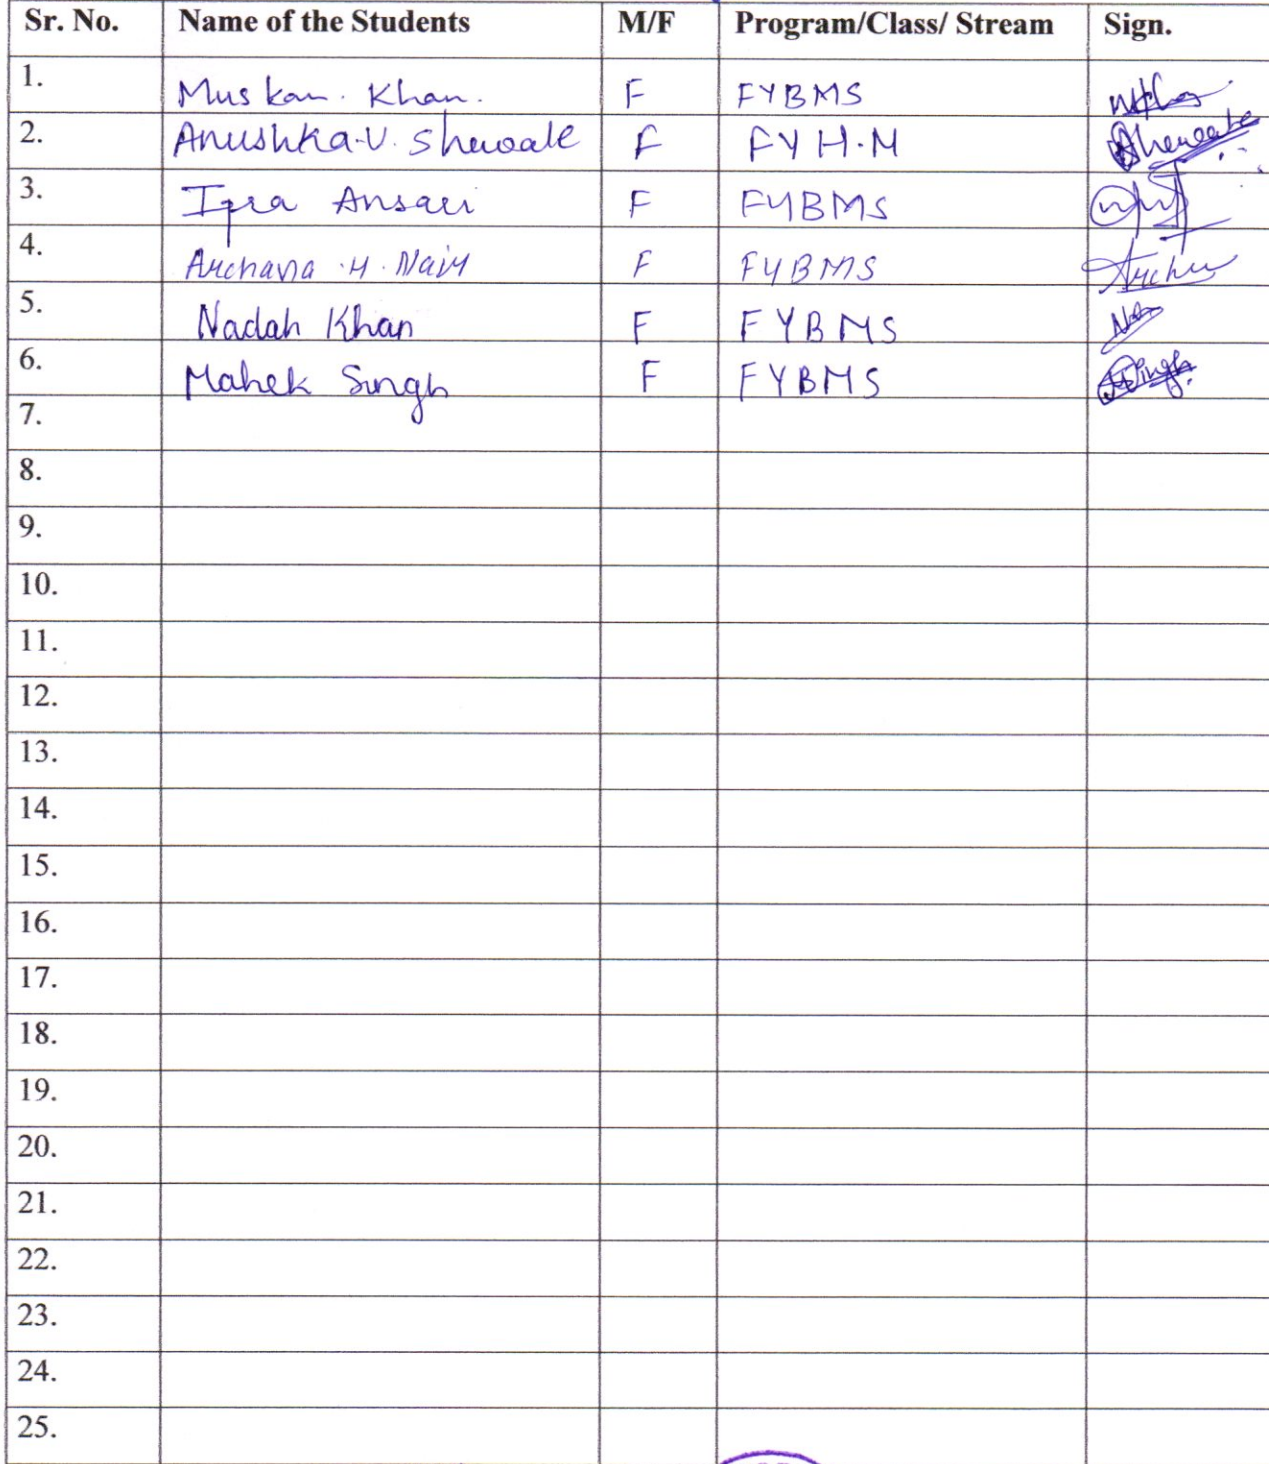 Sr. No. Name of the Students M/F Program/Class/ Stream Sign.
1. Muskan. Khan. F FYBMS
2. Anushka.V. Shewale F FY H.M Shewale
3. Iqra Ansari F FYBMS
4. Archana .H. Nair F FYBMS Archu
5. Nadah Khan F FYBMS
6. Mahek Singh F FYBMS Singh
7.
8.
9.
10.
11.
12.
13.
14.
15.
16.
17.
18.
19.
20.
21.
22.
23.
24.
25.